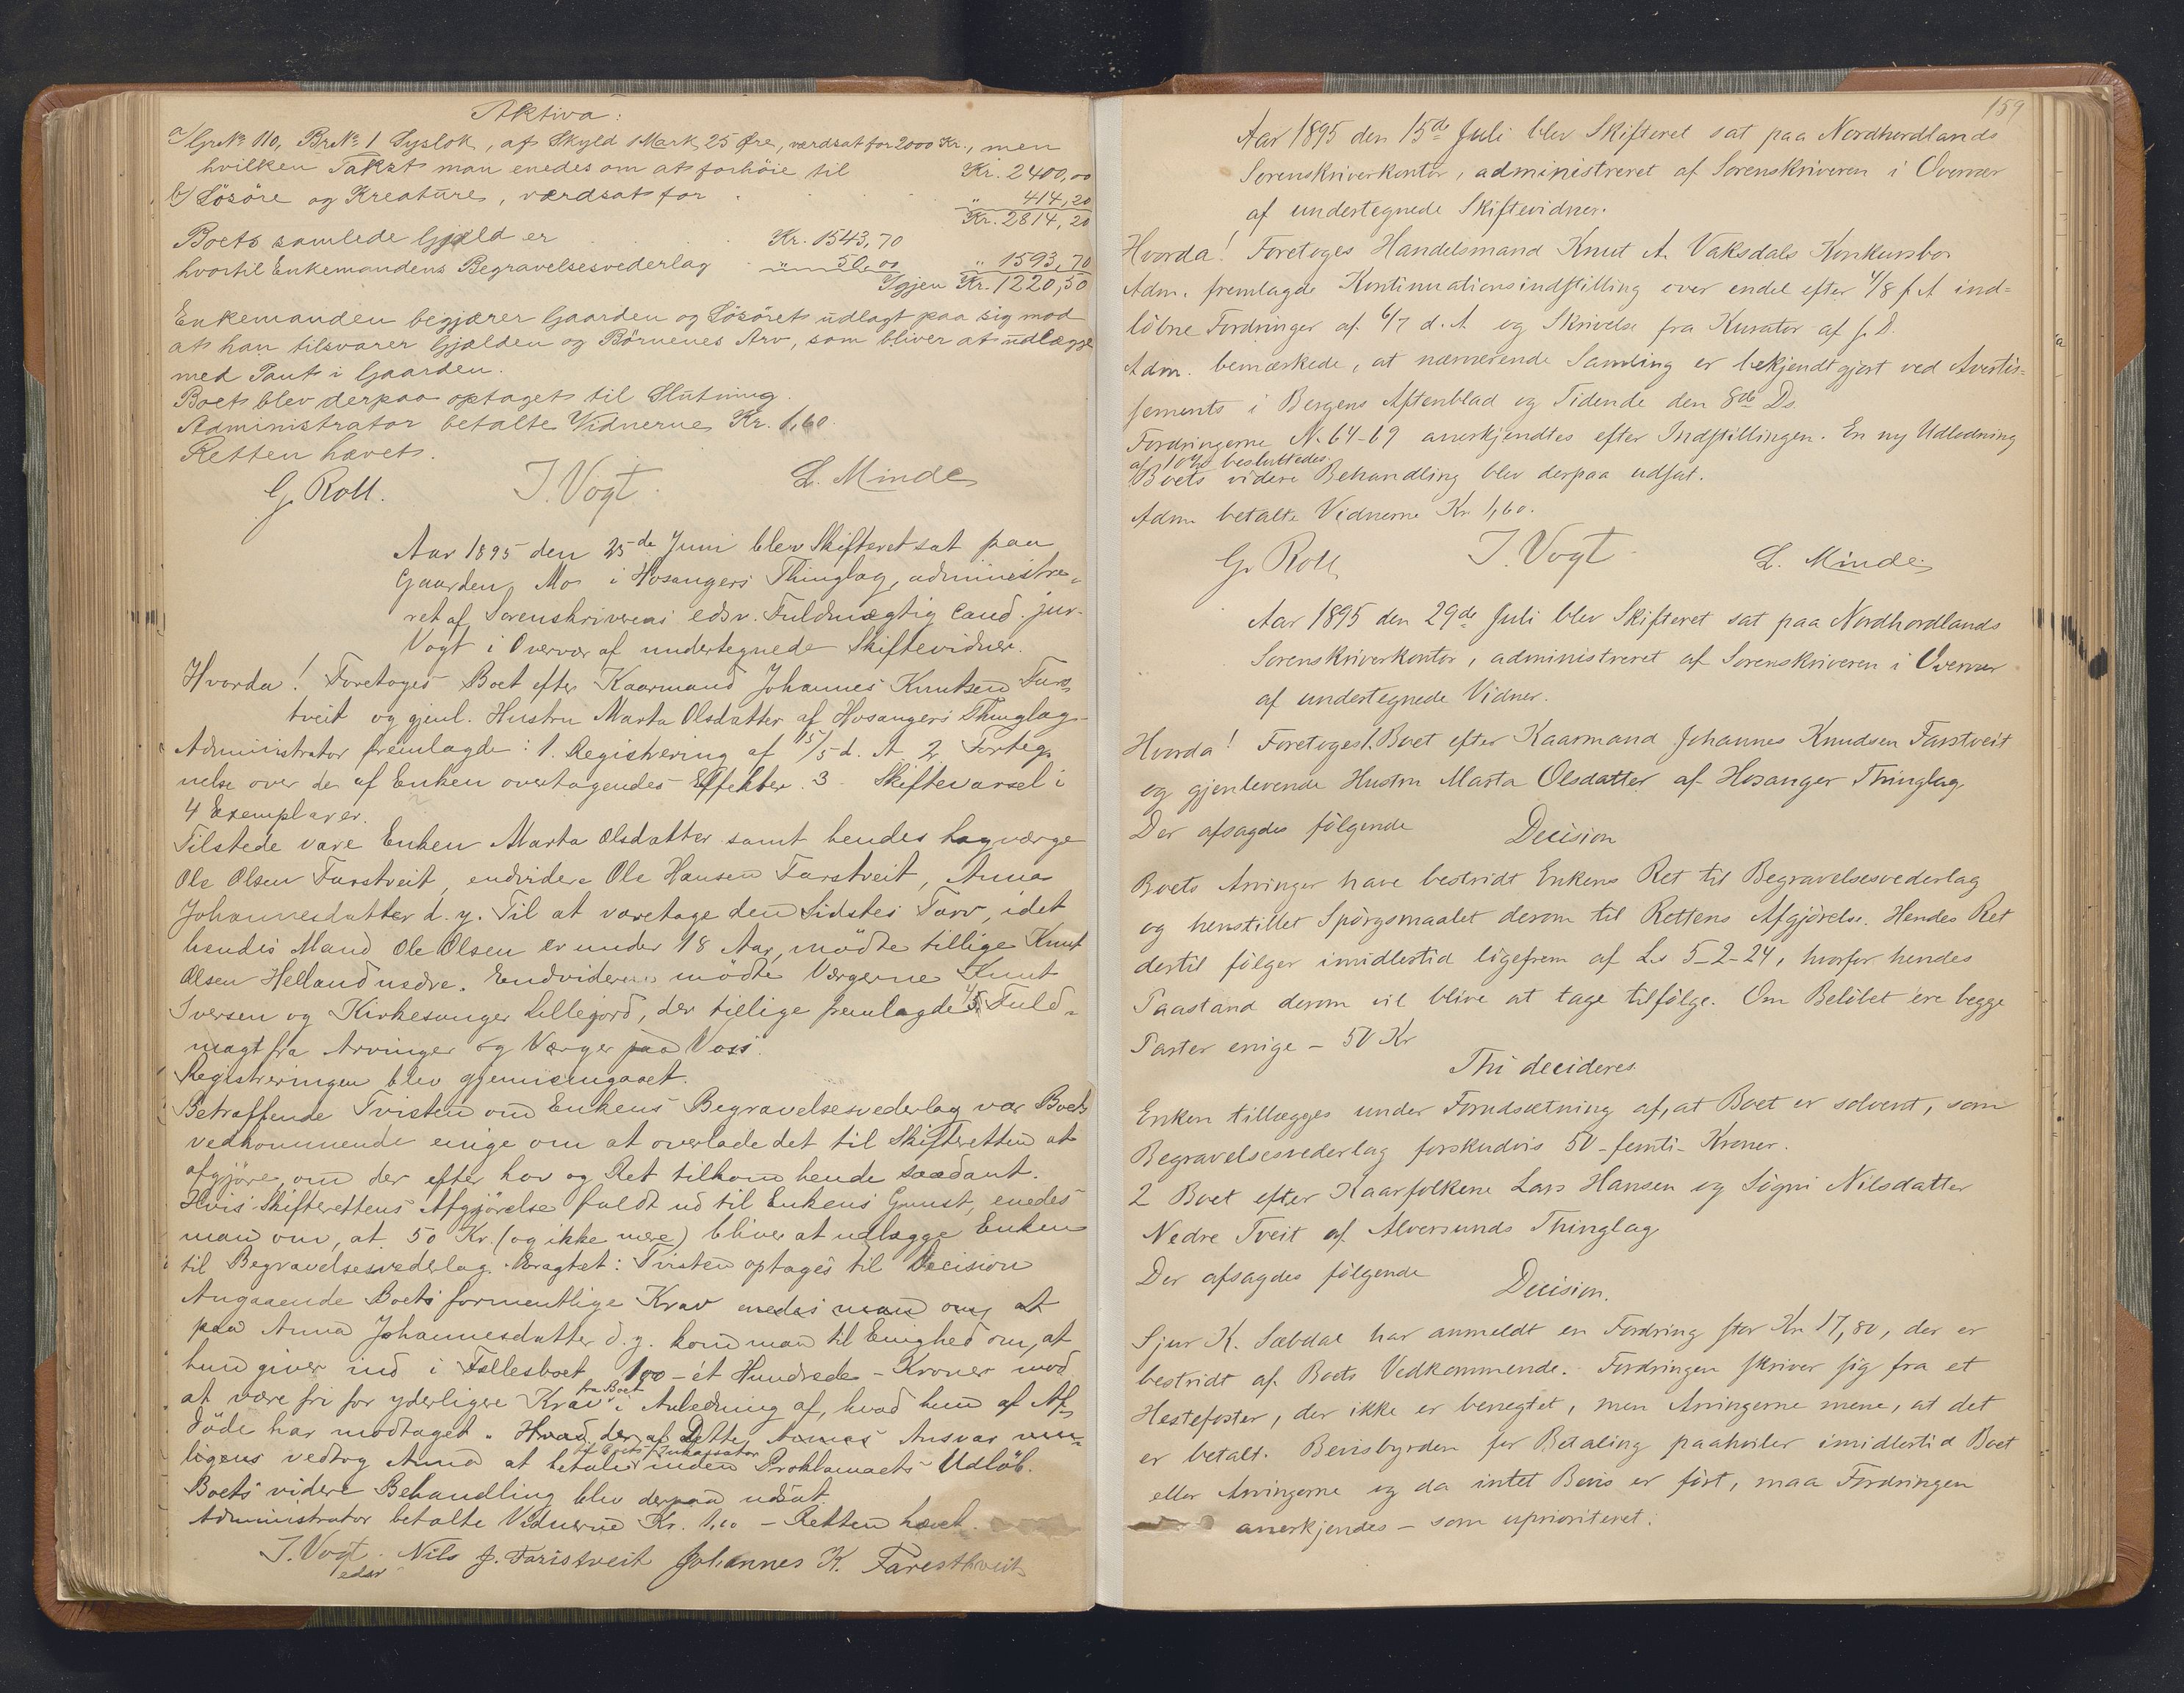 Aktiva:
a/ Gr.No 110, Br.No 1 Syslok, af Skyld 1 Mark 25 Øre, værdsat for 2000 Kr., men
hvilken Takst man enedes om at forhöie til Kr. 2400,00
b/ Lösöre og Kreature, værdsat for " 414,20
Kr. 2814,20
Boets samlede Gjæld er Kr. 1543,70
hvortil Enkemandens Begravelsesvederlag " 50,00 " 1593,70
Igjen Kr. 1220,50
Enkemanden begjærer Gaarden og Lösöret udlagt paa sig mod
at han tilsvarer Gjælden og Börnenes Arv, som bliver at udlægge
med Pant i Gaarden.
Boet blev derpaa optaget til Slutning.
Administrator betalte Vidnerne Kr. 1,60.
Retten hævet.
G. Roll. J. Vogt. L. Minde
Aar 1895 den 25de Juni blev Skifteret sat paa
Gaarden Mo i Hosangers Thinglag, administre-
ret af Sorenskriverens edsv. Fuldmægtig Cand. jur.
Vogt i Overvær af undertegnede Skiftevidner.
Hvorda! Foretoges Boet efter Kaarmand Johannes Knutsen Fars-
tveit og gjenl. Hustru Marta Olsdatter af Hosangers Thinglag.
Administrator fremlagde: 1. Registrering af 15/5 d. A. 2. Forteg-
nelse over de af Enken overtagendes Effekter. 3. Skiftevarsel i
4 Exemplarer.
Tilstede vare Enken Marta Olsdatter samt hendes Lagværge
Ole Olsen Farstveit, endvidere Ole Hansen Farstveit, Anna
Johannesdatter d. y. Til at varetage den Sidstes Tarv, idet
hendes Mand Ole Olsen er under 18 Aar, mödte tillige Knut
Olsen Helland nedre. Endvidere mödte Værgerne Knut
Iversen og Kirkesanger Lillejord, der tillige fremlagde Fuld-
magt fra Arvinger og Værger paa Voss.
Registreringen blev gjennemgaaet.
Betræffende Tvisten om Enkens Begravelsesvederlag var Boets
vedkommende enige om at overlade det til Skifteretten at
afgjöre, om der efter Lov og Ret tilkom hende saadant.
Hvis Skifterettens Afgjörelse faldt ud til Enkens Gunst, enedes
man om, at 50 Kr. (og ikke mere) bliver at udlægge Enken
til Begravelsesvederlag. Eragtet: Tvisten optages til Decision
Angaaende Boets formentlige Krav enedes man om, at
paa Anna Johannesdatter d. y. kom man til Enighed om, at
hun giver ind i Fællesboet 100 - ét Hundrede - Kroner mod
at være fri for yderligere Krav fra Boet i Anledning af, hvad hun af Af-
döde har modtaget. Hvad der af Dette Annas Ansvar
vedtog Anna at betale til Boets Inkassator inden Proklamaets Udlöb.
Boets videre Behandling blev derpaa udsat.
Administrator betalte Vidnerne Kr. 1,60 - Retten hævet.
J. Vogt. Nils J. Faristveit Johannes K. Faresthveit
edsv
159
Aar 1895 den 15de Juli blev Skifteret sat paa Nordhordlands
Sorenskriverkontor, administreret af Sorenskriveren i Overvær
af undertegnede Skiftevidner.
Hvorda! Foretoges Handelsmand Knut A. Vaksdals Konkursbo
Adm. fremlagde Kontinuationsindstilling over endel efter 4/8 f. A ind-
löbne Fordringer af 6/7 d. A. og Skrivelse fra Kurator af s. D.
Adm. bemærkede, at nærværende Samling er bekjendtgjort ved Avertis-
sements i Bergens Aftenblad og Tidende den 8de Ds.
Fordringerne N. 64-69 anerkjendtes efter Indstillingen. En ny Udlodning
af 10% besluttedes.
Boets videre Behandling blev derpaa udsat.
Adm. betalte Vidnerne Kr 1,60.
G. Roll J. Vogt L. Minde
Aar 1895 den 29de Juli blev Skifteret sat paa Nordhordlands
Sorenskriverkontor, administreret af Sorenskriveren i Overvær
af undertegnede Vidner.
Hvorda! Foretoges 1. Boet efter Kaarmand Johannes Knudsen Farstveit
og gjenlevende Hustru Marta Olsdatter af Hosanger Thinglag
Der afsagdes fölgende Decision
Boets Arvinger have bestridt Enkens Ret til Begravelsesvederlag
og henstillet Spörgsmaalet derom til Rettens Afgjörelse. Hendes Ret
dertil fölger imidlertid ligefrem af L. 5-2-24, hvorfor hendes
Paastand derom vil blive at tage tilfölge. Om Belöbet ere begge
Parter enige - 50 Kr
Thi decideres
Enken tillægges under Forudsætning af, at Boet er solvent, som
Begravelsesvederlag forskudvis 50 - femti - Kroner.
2 Boet efter Kaarfolkene Lars Hansen og Signi Nilsdatter
Nedre Tveit af Alversunds Thinglag
Der afsagdes fölgende Decision.
Sjur K. Sæbdal har anmeldt en Fordring stor Kr. 17,80, der er
bestridt af Boets Vedkommende. Fordringen skriver sig fra et
Hestefoster, der ikke er benegtet, men Arvingerne mene, at det
er betalt. Bevisbyrden for Betaling paahviler imidlertid Boet
eller Arvingerne og da intet Bevis er fört, maa Fordringen
anerkjendes - som uprioriteret.